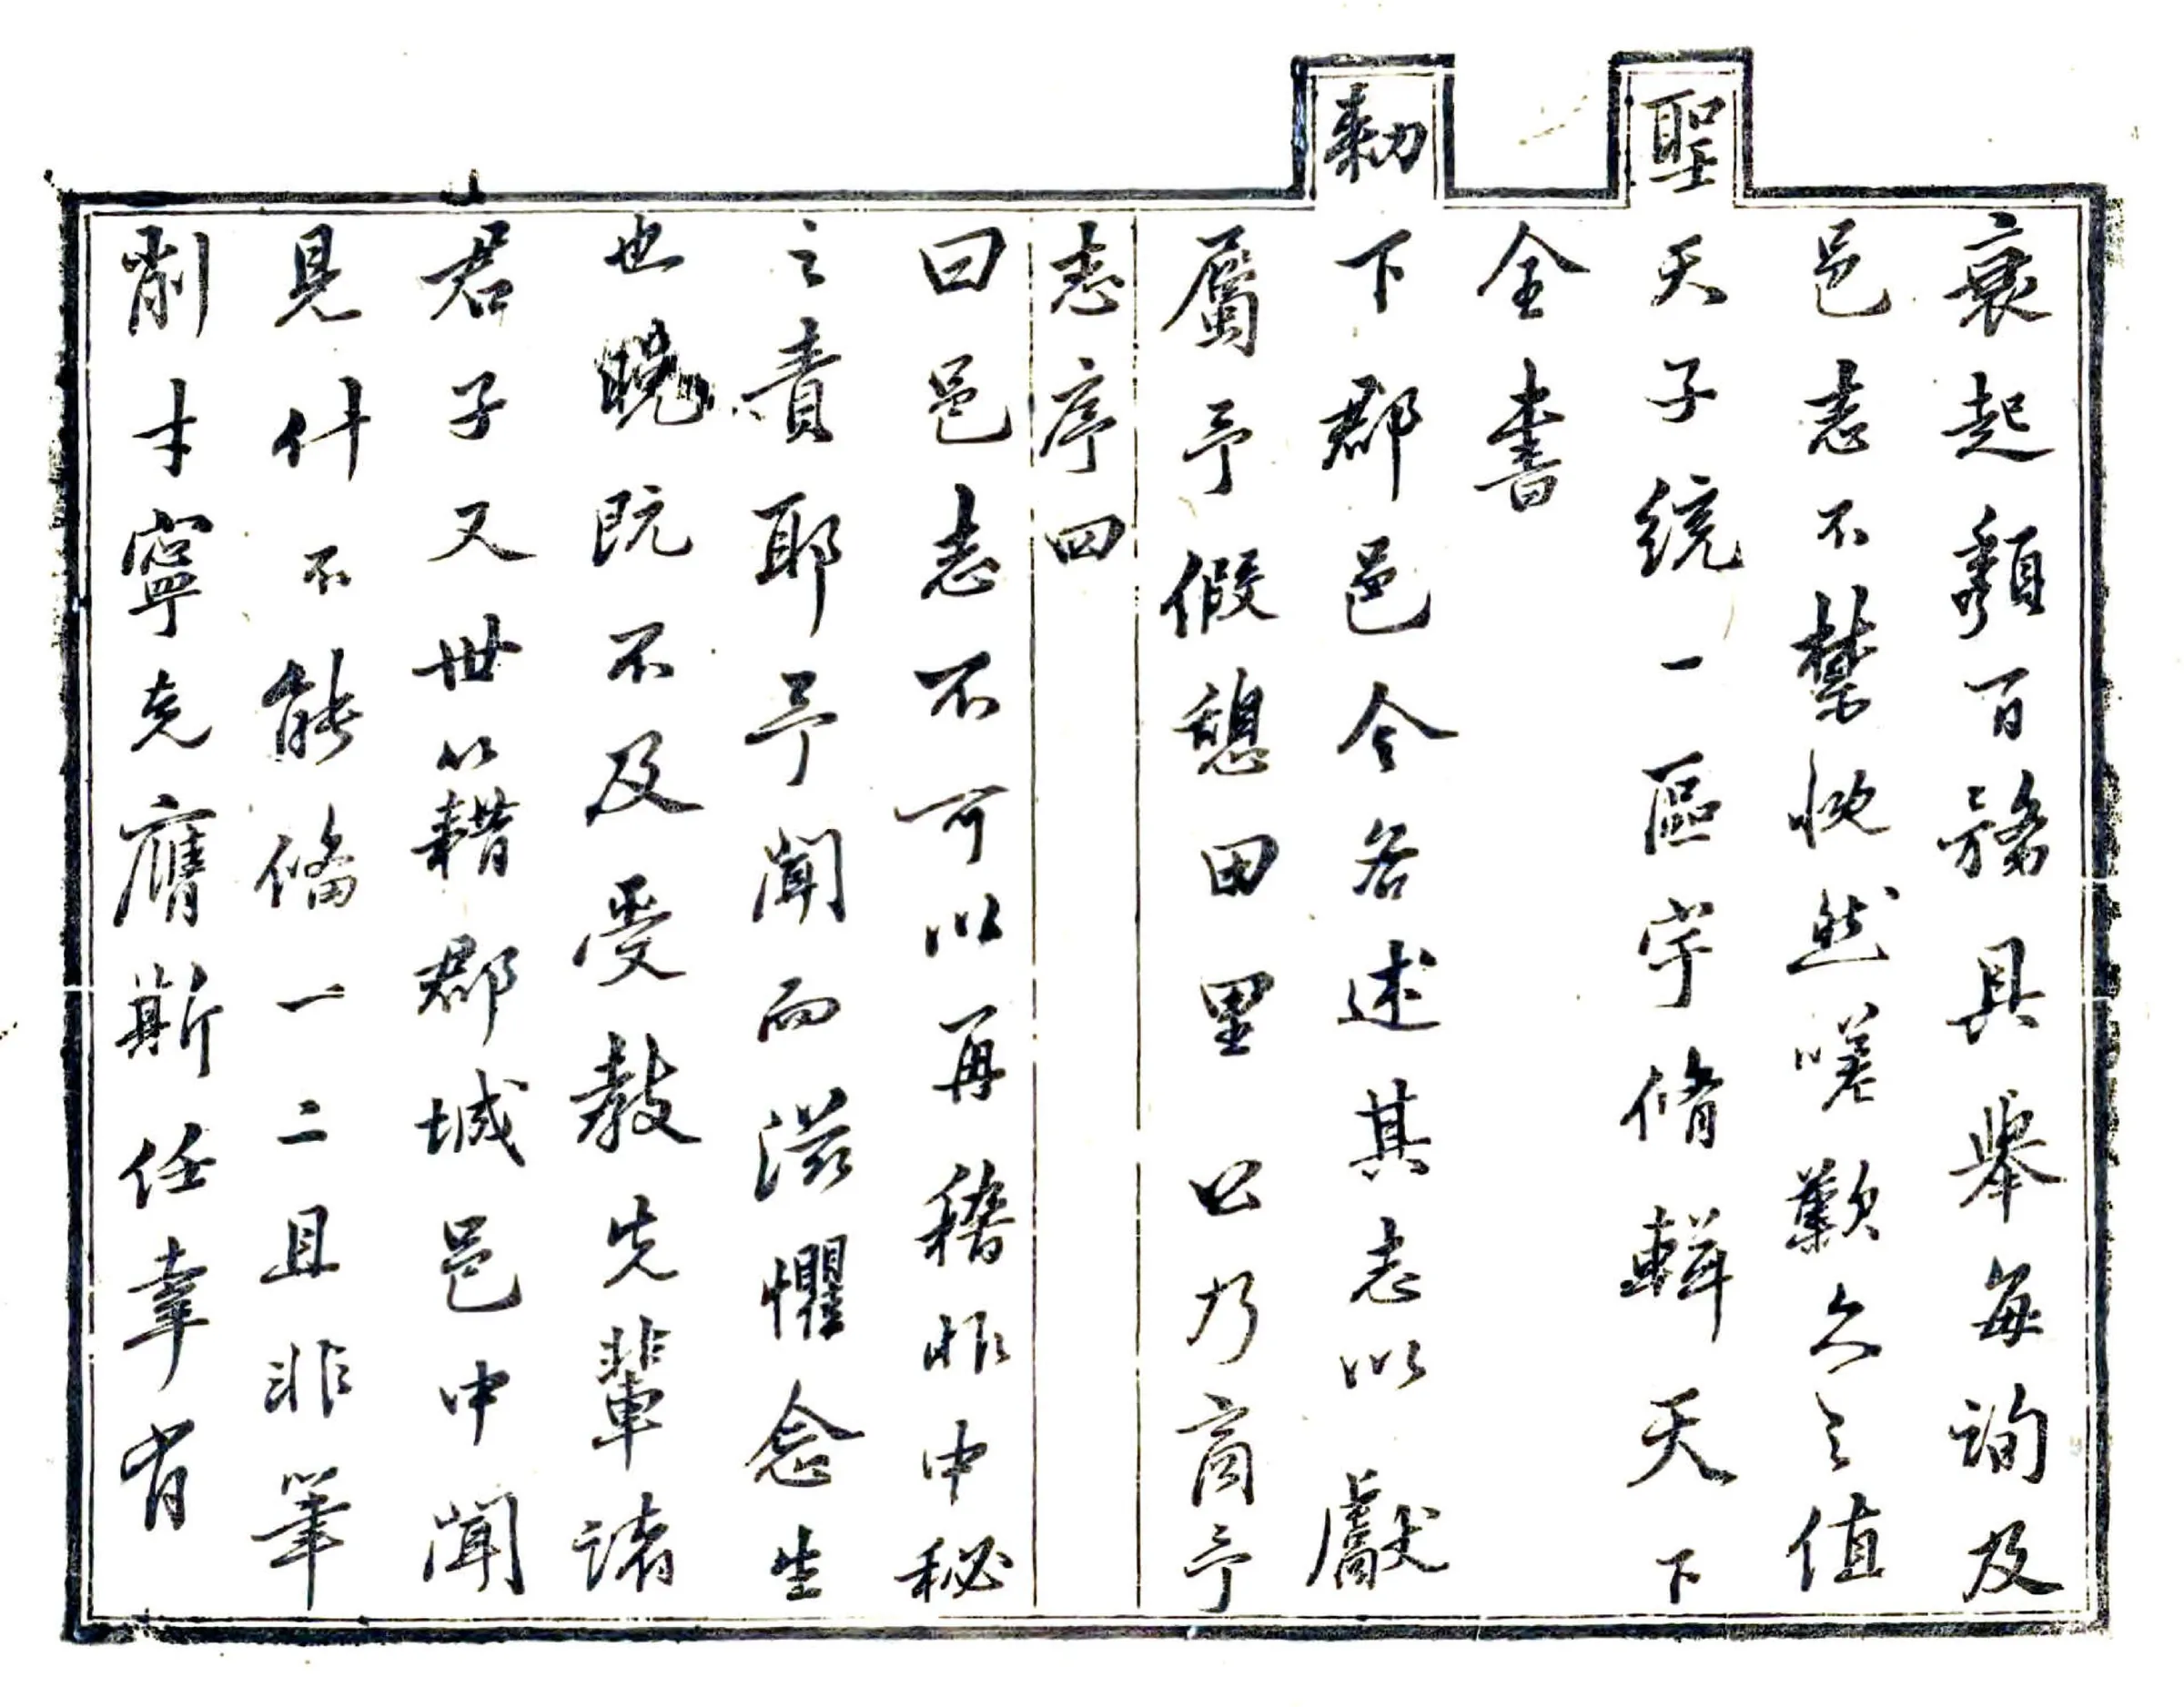 衰起頽百務具舉每詢及
邑志不禁愀然嗟歎久之值
聖天子統一區宇脩輯天下
全書
勅下郡邑令各述其志以獻
屬予假憩田里公乃商予
志序四
曰邑志不可以再稽惟中秘
之責耶予聞而滋懼念生
也晚既不及受教先輩諸
君子又世以籍郡城邑中聞
見什不能備一二且非筆
削才寧克膺斯任幸有